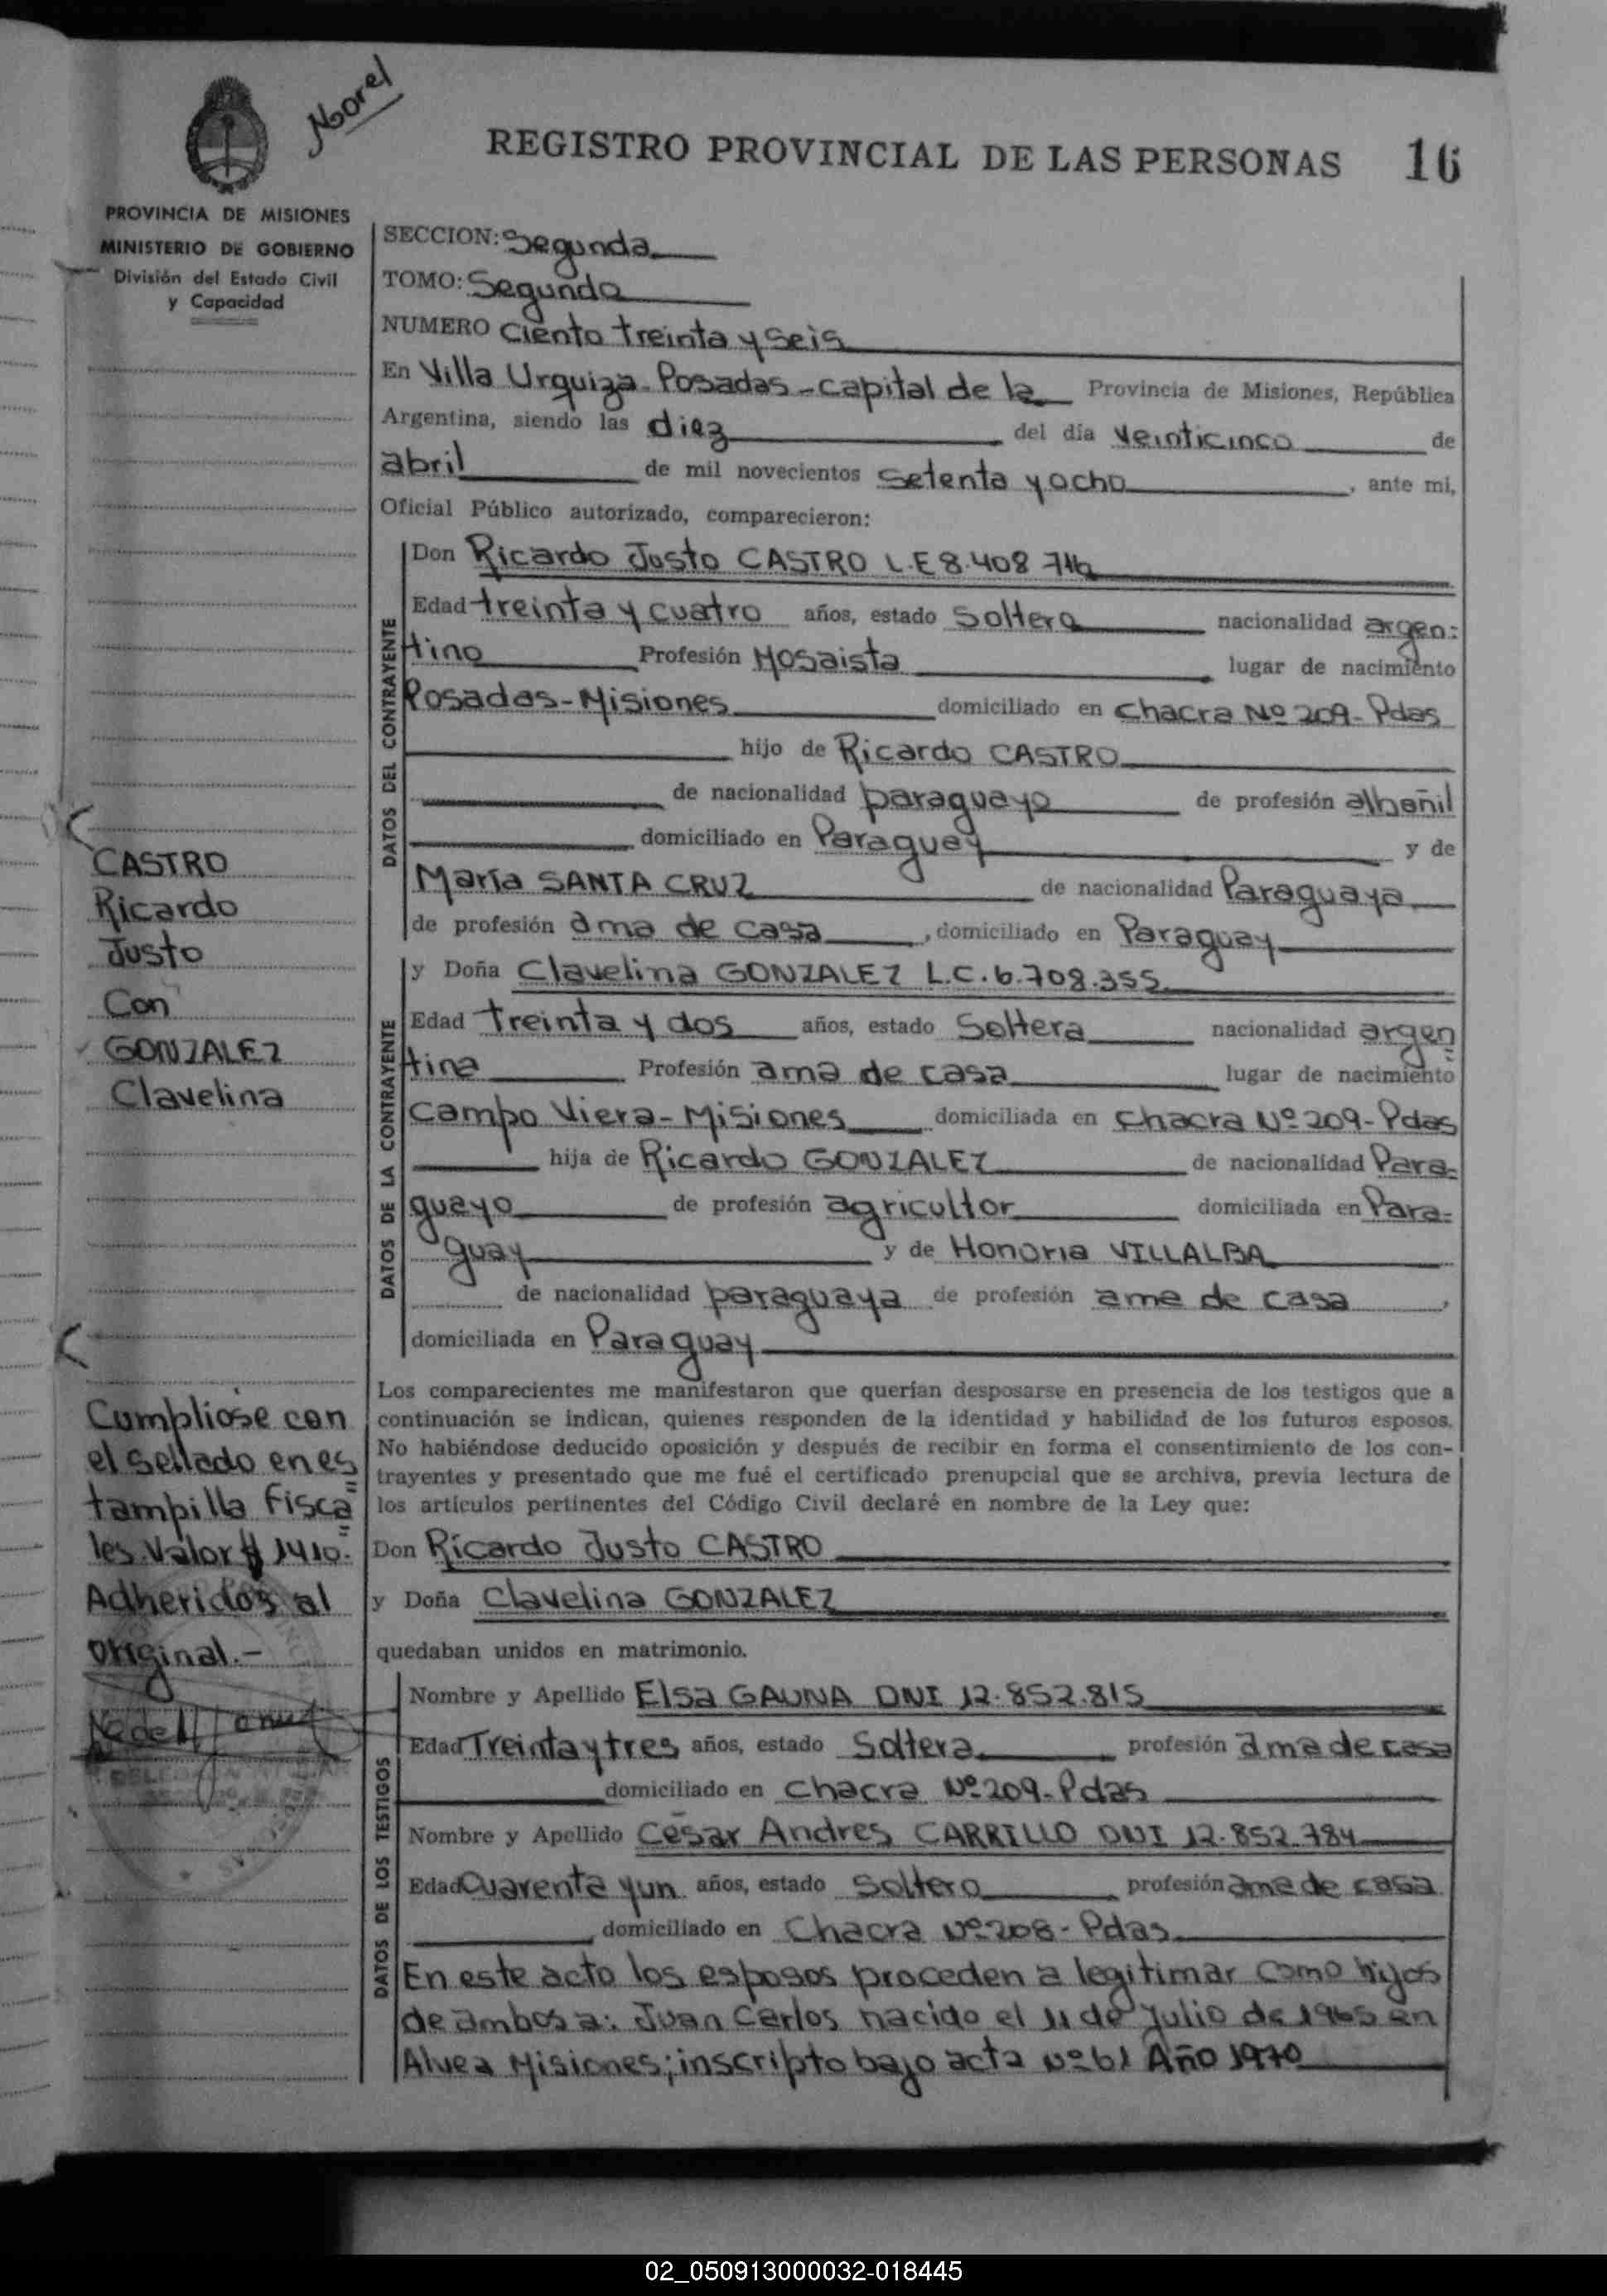 Norel
REGISTRO PROVINCIAL DE LAS PERSONAS 16
PROVINCIA DE MISIONES
MINISTERIO DE GOBIERNO
División del Estado Civil
y Capacidad
SECCION: Segunda
TOMO: Segundo
NUMERO Ciento treinta y seis
En Villa Urquiza. Posadas - capital de la Provincia de Misiones, República
Argentina, siendo las diez del día veinticinco de
abril de mil novecientos setenta y ocho, ante mi,
Oficial Público autorizado, comparecieron:
DATOS DEL CONTRAYENTE
Don Ricardo Justo CASTRO L.E 8.408
Edad treinta y cuatro años, estado Soltero nacionalidad argen=
tino Profesión Mosaista lugar de nacimiento
Posadas-Misiones domiciliado en Chacra Nº 209- Pdas
hijo de Ricardo CASTRO
de nacionalidad paraguayo de profesión albañil
domiciliado en Paraguay y de
María SANTA CRUZ de nacionalidad Paraguaya
de profesión ama de casa, domiciliado en Paraguay
DATOS DE LA CONTRAYENTE
y Doña Clavelina GONZALEZ L.C. 6.708.355
Edad Treinta y dos años, estado Soltera nacionalidad argen=
tina Profesión ama de casa lugar de nacimiento
Campo Viera-Misiones domiciliada en Chacra Nº 209- Pdas
hija de Ricardo GONZALEZ de nacionalidad Para=
guayo de profesión agricultor domiciliada en Para=
guay y de Honoria VILLALBA
de nacionalidad paraguaya de profesión ama de casa,
domiciliada en Paraguay
CASTRO
Ricardo
Justo
Con
GONZALEZ
Clavelina
Los comparecientes me manifestaron que querían desposarse en presencia de los testigos que a
continuación se indican, quienes responden de la identidad y habilidad de los futuros esposos.
No habiéndose deducido oposición y después de recibir en forma el consentimiento de los con-
trayentes y presentado que me fué el certificado prenupcial que se archiva, previa lectura de
los artículos pertinentes del Código Civil declaré en nombre de la Ley que:
Don Ricardo Justo CASTRO
y Doña Clavelina GONZALEZ
quedaban unidos en matrimonio.
Cumpliose con
el sellado en es=
tampilla Fisca=
les. Valor $ 1410.
Adheridos al
original.-
DATOS DE LOS TESTIGOS
Nombre y Apellido Elsa GAUNA DNI 12.852.815
Edad Treinta y tres años, estado Soltera profesión ama de casa
domiciliado en Chacra Nº 209- Pdas
Nombre y Apellido César Andres CARRILLO DNI 12.852.784
Edad Cuarenta y un años, estado Soltero profesión ama de casa
domiciliado en Chacra Nº 208- Pdas
En este acto los esposos proceden a legitimar como hijos
de ambos a: Juan Carlos nacido el 11 de Julio de 1965 en
Misiones; inscripto bajo acta Nº 61 Año 1970
02_050913000032-018445